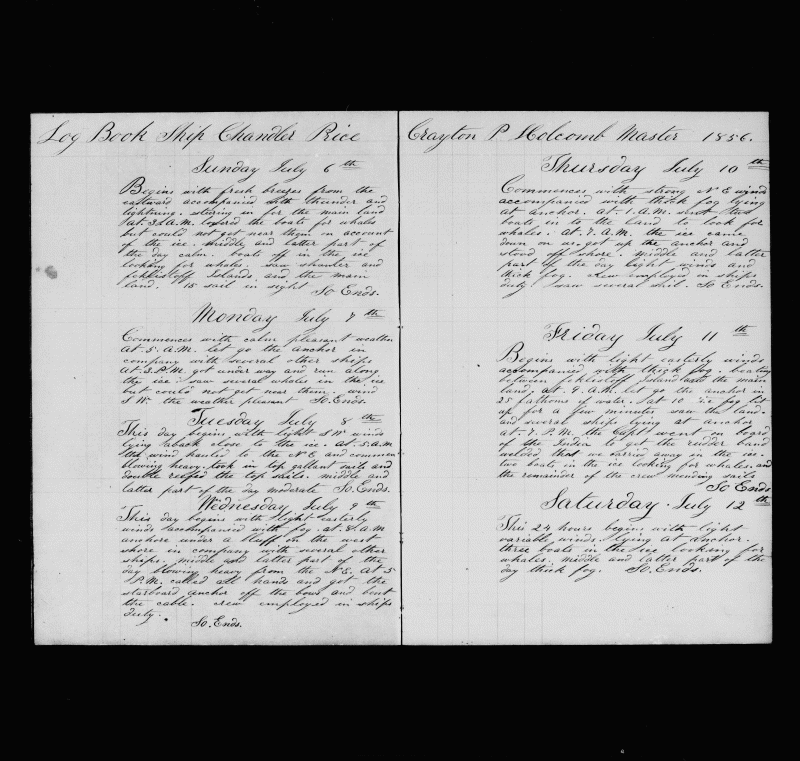 Log Book Ship Chandler Price
Sunday July 6th
Begins with fresh breezes from the
eastward accompanied with thunder and
lightning. stering in for the main land
at. 3. A.M. lowered the boats for whales
but could not get near them on account
of the ice. middle and latter part of
the day calm. boats off in the ice
looking for whales. saw shanter and
feklistoff Islands and the main
land. 15 sail in sight So Ends.
Monday July 7th
Commences with calm pleasant weather
At. 5. A.M. let go the anchor in
company with several other ships
At. 3. P.M. got under way and run along
the ice. saw several whales in the ice
but could not get near them. wind
S W. the weather pleasant So. Ends.
Tuesday July 8th
This day begins with light S W winds
lying aback close to the ice. At. 5. A.M
the wind hauled to the N E and commen
blowing heavy. took in top gallant sails and
double reefed the top sails. middle and
latter part of the day moderate So. Ends.
Wednesday July 9th
This day begins with light easterly
winds accompanied with fog. at. 8. A.M
anchore under a bluff on the west
shore in company with several other
ships. middle and latter part of the
day blowing heavy from the N.E. At. 5
P.M. called all hands and got the
starboard anchor off the bows and bent
the cable. crew employed in ships
duty.
So. Ends.
Crayton P Holcomb Master 1856.
Thursday July 10th
Commences with strong N E winds
accompanied with thick fog lying
at anchor. at. 1. A.M. sent two
boats in to the land to look for
whales. At. 7. A.M. the ice came
down on us. got up the anchor and
stood off shore. middle and latter
part off the day light winds and
thick fog. Crew employed in ships
duty saw several sail. So Ends.
Friday July 11th
Begins with light easterly winds
accompanied with thick fog. beating
between feklistoff Island and the main
land, at 8. A.M. let go the anchor in
25 fathoms of water. at 10 the fog lit
up for a few minutes saw the land.
and several ships lying at anchor
at. 7. P.M. the Capt. went on board
of the India to get the rudder band
welded that we carried away in the ice.
two boats in the ice looking for whales. and
the remainder of the crew mending sails
So Ends
Saturday. July 12th
This 24 hours begins with light
variable winds. lying at anchor.
three boats in the ice looking for
whales. middle and latter part of the
day thick fog. So. Ends.